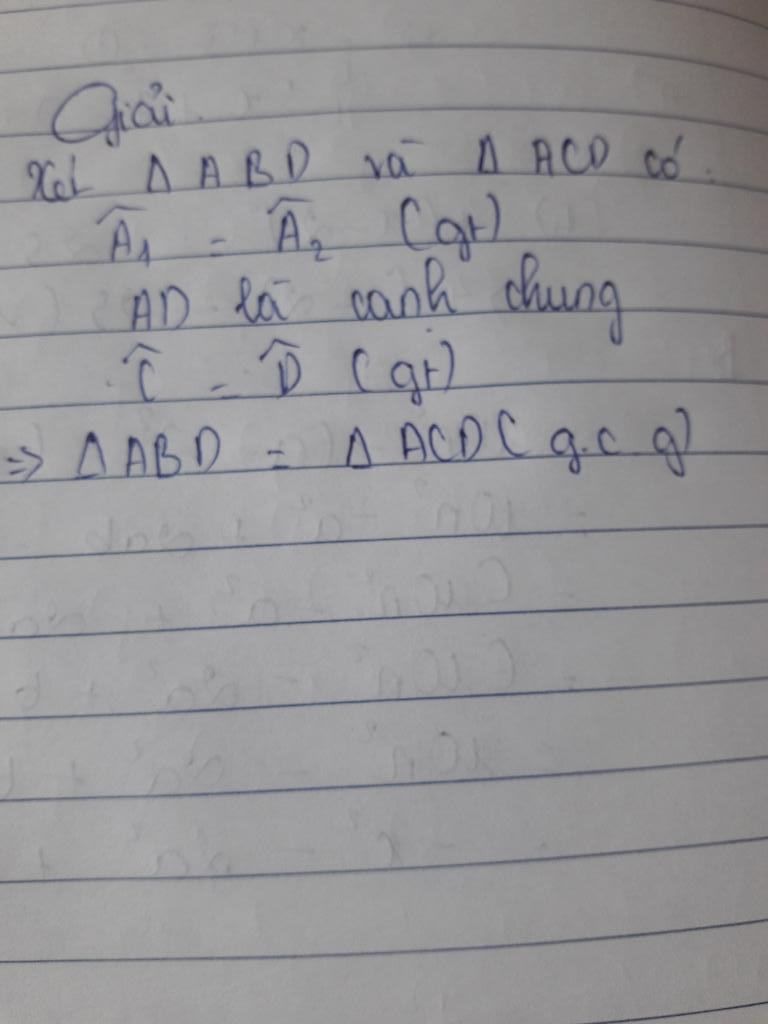 Giải.
Xét Δ ABD và Δ ACD có.
Â1 = Â2 (gt)
AD là canh chung
Ĉ = D̂ (gt)
=> Δ ABD = Δ ACD ( g.c g)